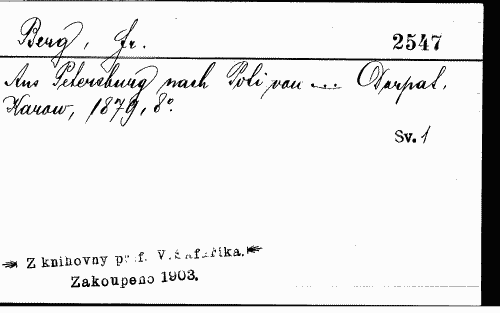 Berg, Fr.
2547
Aus Petersburg nach Poti von ... Dorpat,
Karow, 1879, 8°.
Sv. 1
Z knihovny prof. V. Šafaříka.
Zakoupeno 1903.